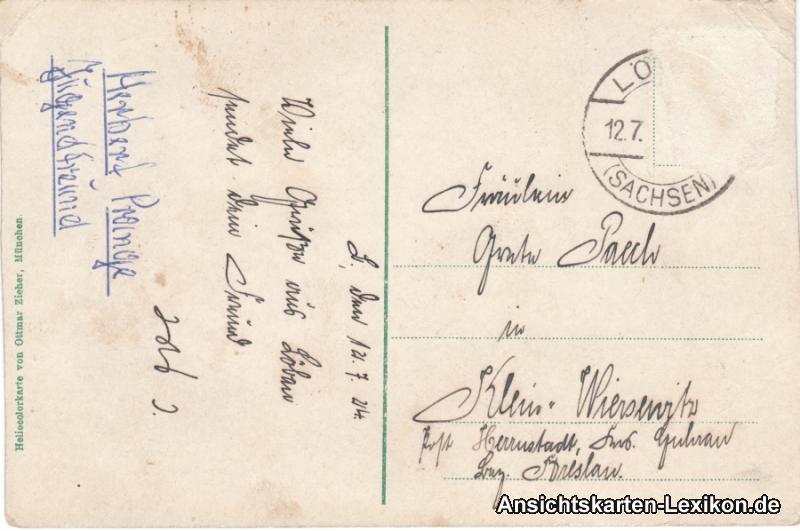 L, den 12.7.24.
Viele Grüße aus Löbau
sendet dein Freund
Herbert
Jugendfreund
Fräulein
Grete Paech
in
Klein-Wiersewitz
Post Herrnstadt, Krs. Guhrau
Bez. Breslau.
LÖ
12.7.
(SACHSEN)
Heliocolorkarte von Ottmar Zieher, München.
Ansichtskarten-Lexikon.de